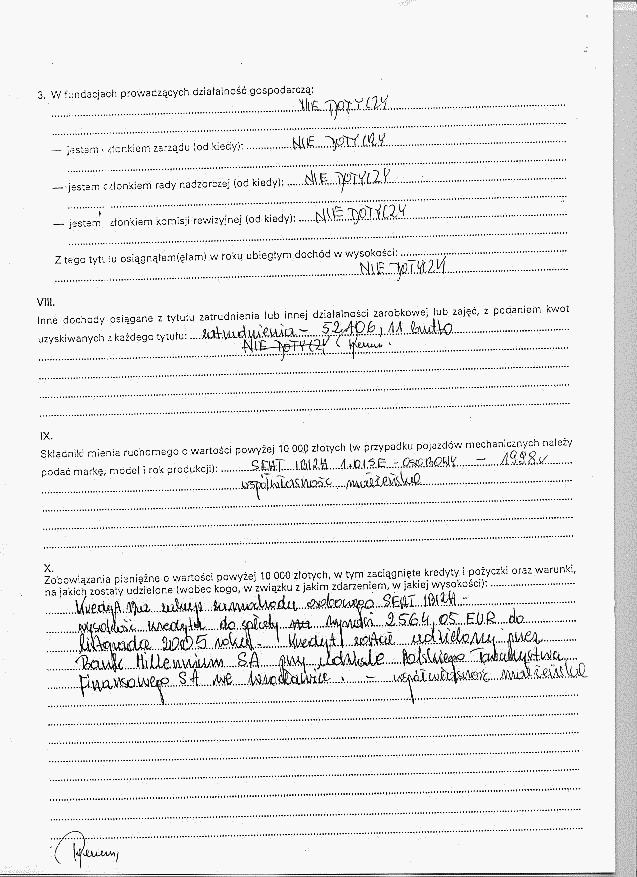 3. W fundacjach prowadzących działalność gospodarczą:
NIE DOTYCZY
— jestem członkiem zarządu (od kiedy): NIE DOTYCZY
— jestem członkiem rady nadzorczej (od kiedy): NIE DOTYCZY
— jestem członkiem komisji rewizyjnej (od kiedy): NIE DOTYCZY
Z tego tytułu osiągnąłem(ęłam) w roku ubiegłym dochód w wysokości:
NIE DOTYCZY
VIII.
Inne dochody osiągane z tytułu zatrudnienia lub innej działalności zarobkowej lub zajęć, z podaniem kwot
uzyskiwanych z każdego tytułu: zatrudnienia – 52106,11 brutto
NIE DOTYCZY
IX.
Składniki mienia ruchomego o wartości powyżej 10 000 złotych (w przypadku pojazdów mechanicznych należy
podać markę, model i rok produkcji): SEAT IBIZA - OSOBOWY – 1998r
współwłasność małżeńska
X.
Zobowiązania pieniężne o wartości powyżej 10 000 złotych, w tym zaciągnięte kredyty i pożyczki oraz warunki,
na jakich zostały udzielone (wobec kogo, w związku z jakim zdarzeniem, w jakiej wysokości):
Kredyt na zakup samochodu osobowego SEAT IBIZA –
wysokość kredytu do spłaty na wynosi 2564,05 EUR do
listopada 2005 roku. Kredyt został udzielony przez
Bank Millennium SA przy udziale Polskiego Towarzystwa
Finansowego SA we Wrocławiu. – współwłasność małżeńska